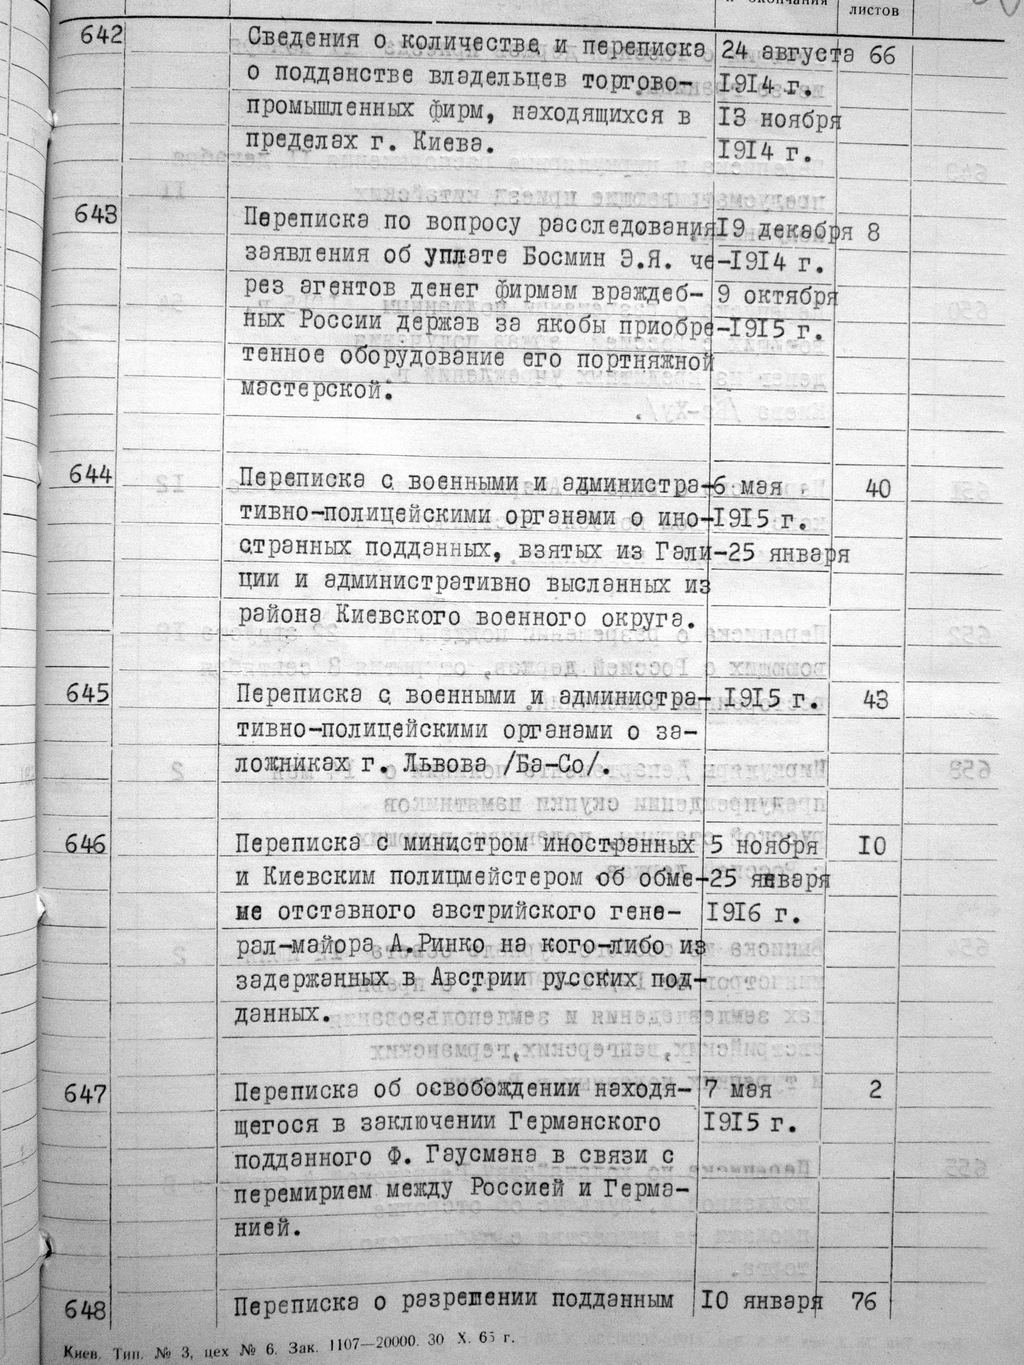 и окончания
листов
642 Сведения о количестве и переписка 24 августа 66
о подданстве владельцев торгово- 1914 г.
промышленных фирм, находящихся в 13 ноября
пределах г. Киева. 1914 г.
643 Переписка по вопросу расследования 19 декабря 8
заявления об уплате Босмин Э.Я. че- 1914 г.
рез агентов денег фирмам враждеб- 9 октября
ных России держав за якобы приобре- 1915 г.
тенное оборудование его портняжной
мастерской.
644 Переписка с военными и администра- 6 мая 40
тивно-полицейскими органами о ино- 1915 г.
странных подданных, взятых из Гали- 25 января
ции и административно высланных из
района Киевского военного округа.
645 Переписка с военными и администра- 1915 г. 43
тивно-полицейскими органами о за-
ложниках г. Львова /Ба-Со/.
646 Переписка с министром иностранных 5 ноября 10
и Киевским полицмейстером об обме- 25 января
не отставного австрийского гене- 1916 г.
рал-майора А.Ринко на кого-либо из
задержанных в Австрии русских под-
данных.
647 Переписка об освобождении находя- 7 мая 2
щегося в заключении Германского 1915 г.
подданного Ф. Гаусмана в связи с
перемирием между Россией и Герма-
нией.
648 Переписка о разрешении подданным 10 января 76
Киев. Тип. № 3, цех № 6. Зак. 1107—20000. 30 X. 65 г.